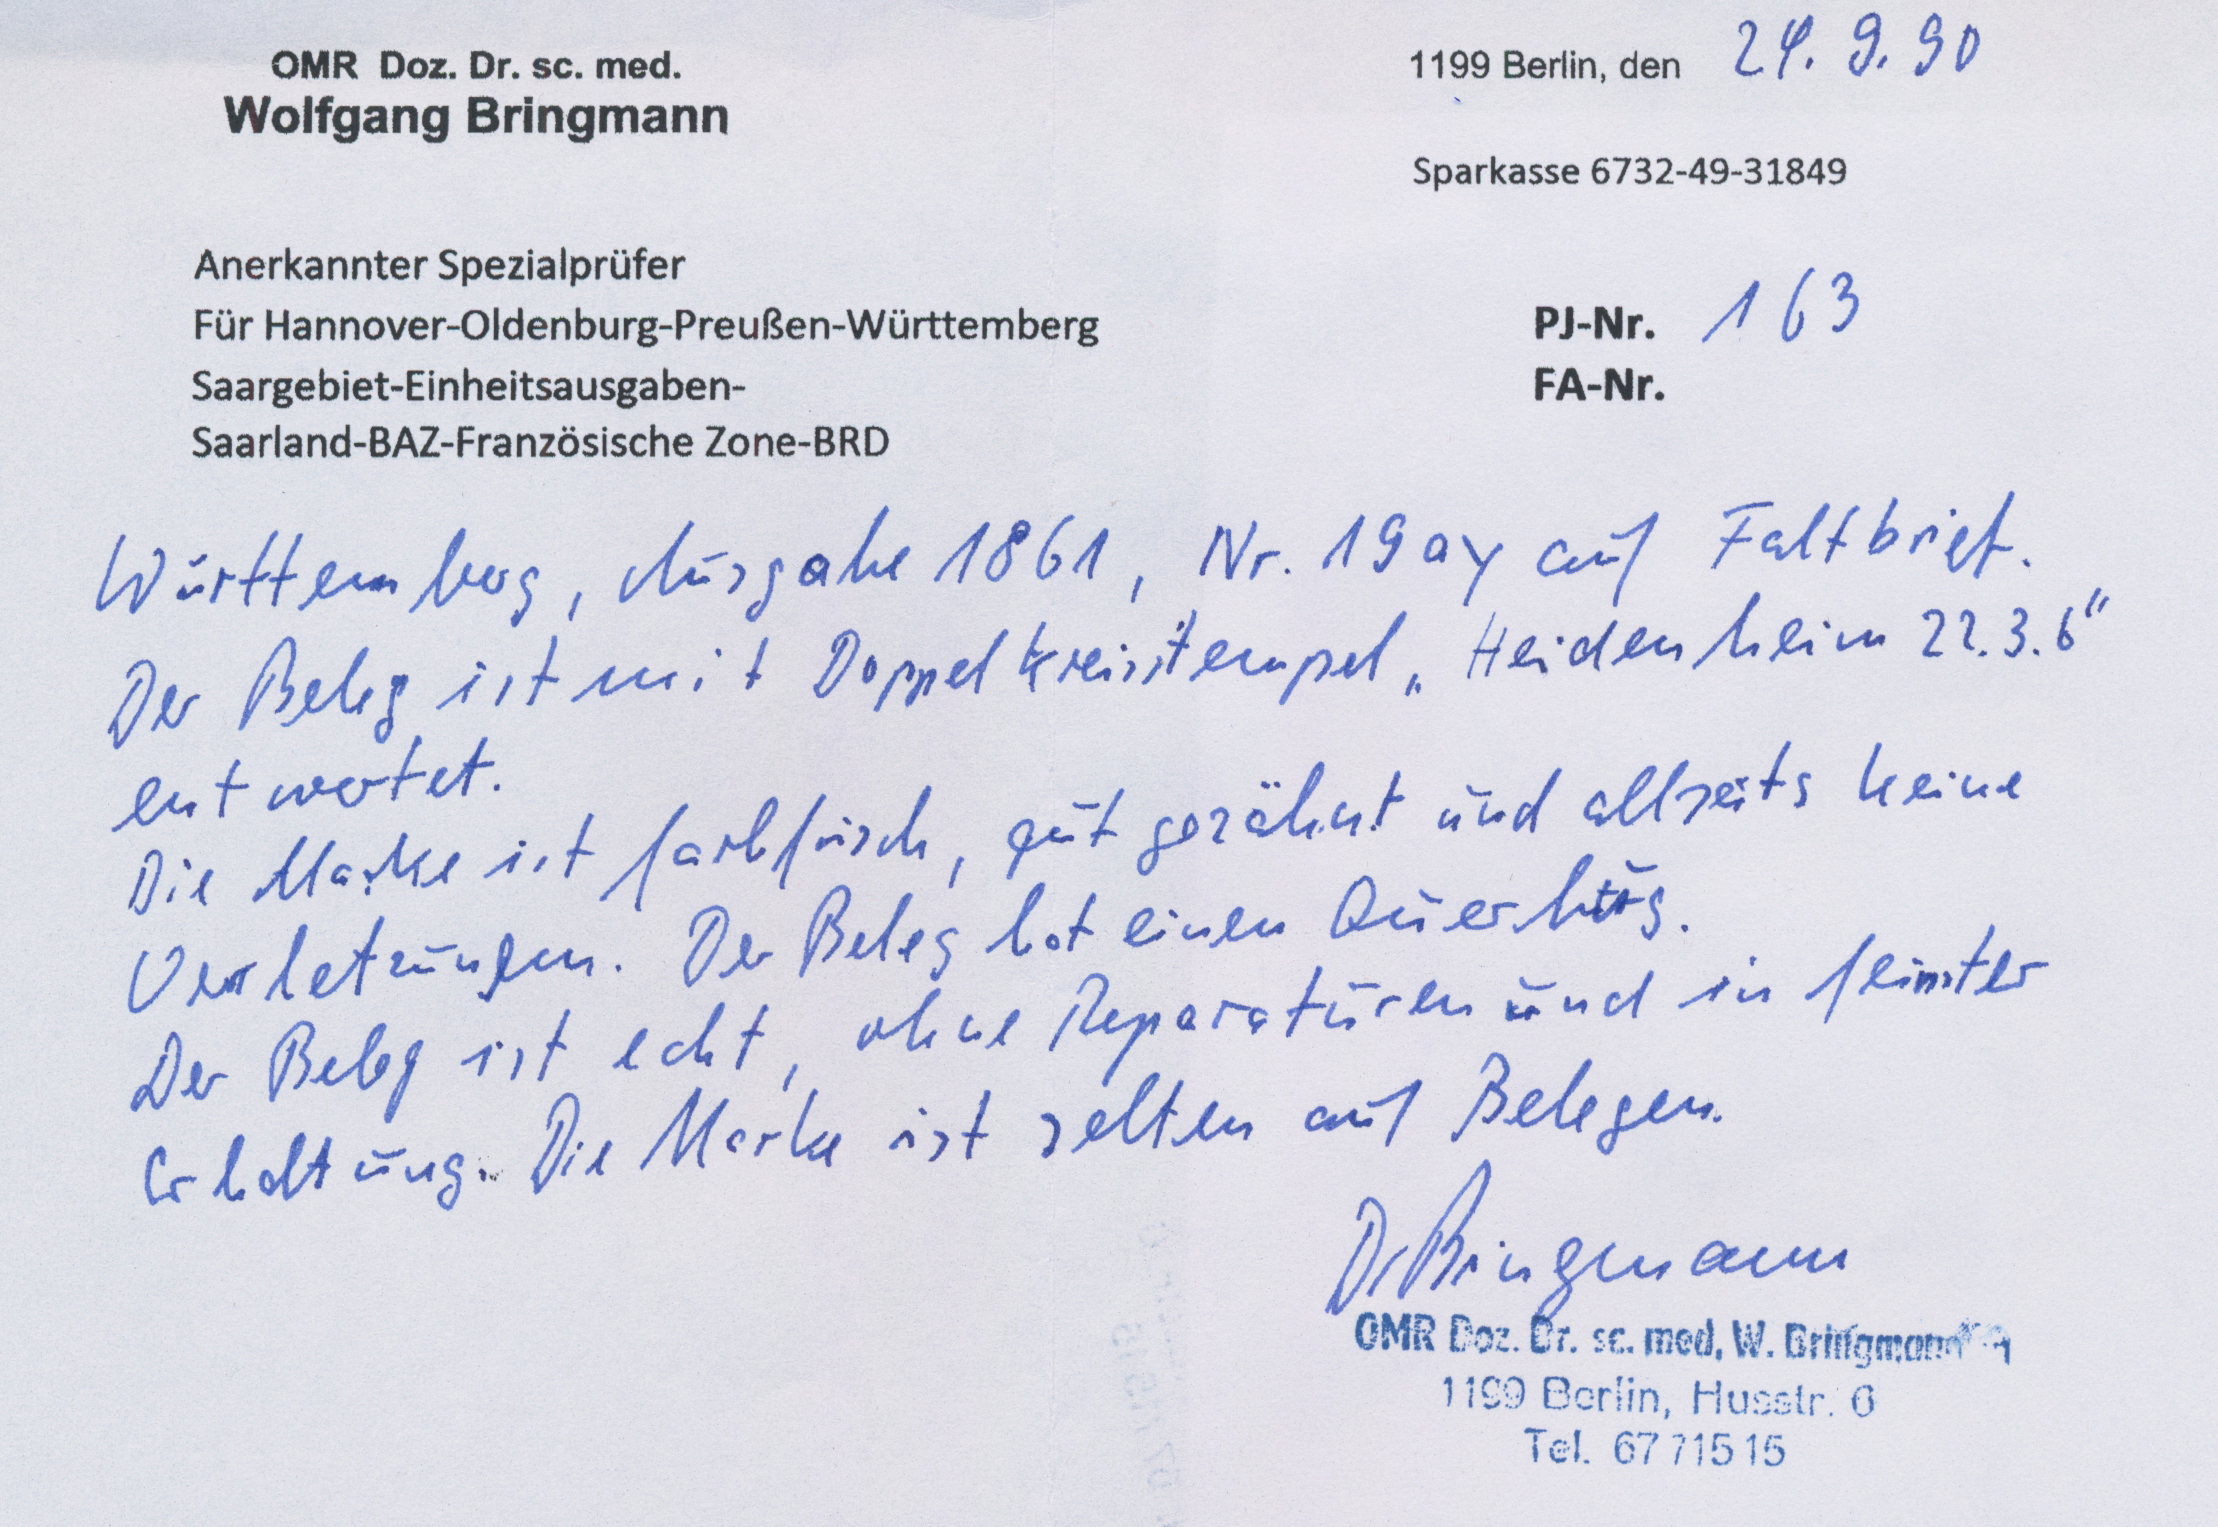 OMR Doz. Dr. sc. med.
Wolfgang Bringmann
1199 Berlin, den 24. 9. 90
Sparkasse 6732-49-31849
Anerkannter Spezialprüfer
Für Hannover-Oldenburg-Preußen-Württemberg
Saargebiet-Einheitsausgaben-
Saarland-BAZ-Französische Zone-BRD
PJ-Nr. 163
FA-Nr.
Württemberg, Ausgabe 1861, Nr. 19ay auf Faltbrief.
Der Beleg ist mit Doppelkreisstempel „Heidenheim 22.3.6“
entwertet.
Die Marke ist farbfrisch, gut gezähnt und allseits keine
Verletzungen. Der Beleg hat einen Querbug.
Der Beleg ist echt, ohne Reparaturen und in feinster
Erhaltung. Die Marke ist selten auf Belegen.
Dr Bringmann
OMR Doz. Dr. sc. med. W. Bringmann
1199 Berlin, Husstr. 6
Tel. 67 715 15